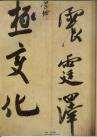 震霆澤
極變化